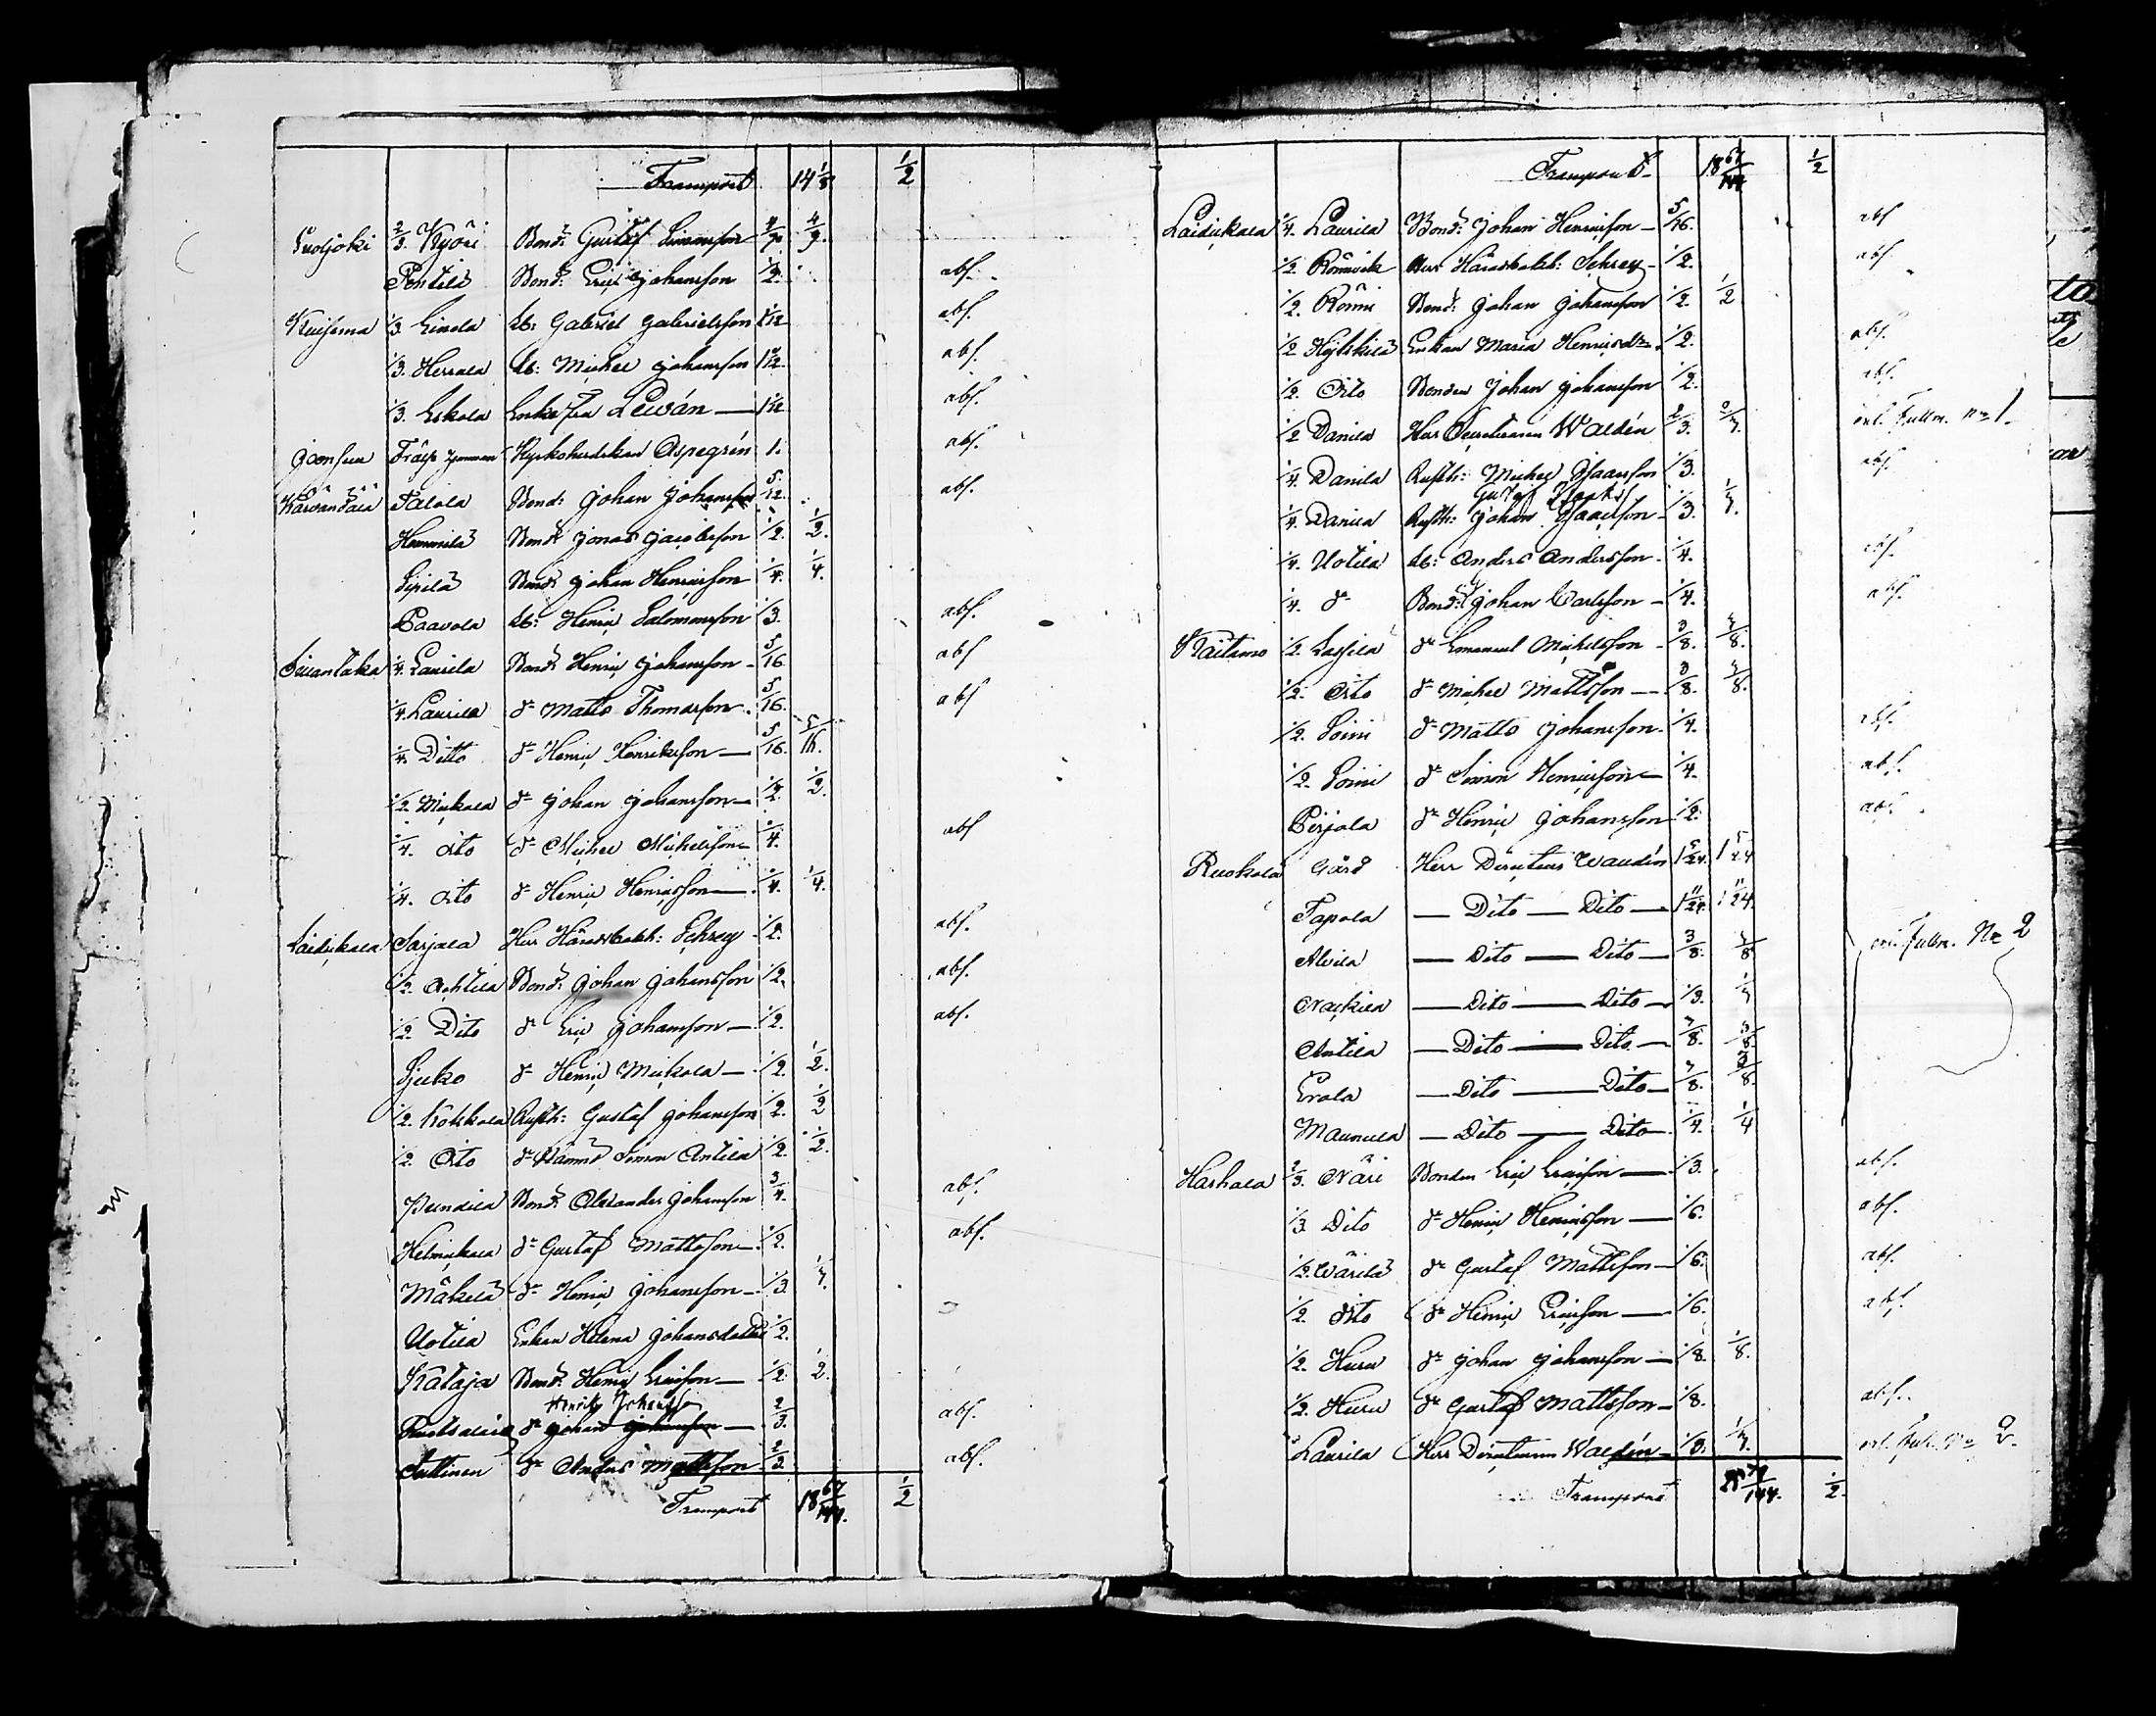 Transport 14 1/8 1/2
2/3 Kyöri Bond: Gustaf Simonsson 4/9 4/9
Penttilä Bond: Eric Johansson 1/2 abs.
1/3. Db: Gabriel Gabrielsson abs.
1/3. Herrala Db: Michel Johansson abs.
1/3. Eskola Enkefru Levón abs.
Kyrkoherdekan Aspegrén 1. abs.
Talola Bond: Johan Johansson 5/12. abs.
Hemmilä Bond: Jonas Jacobsson 1/2. 1/2.
Sipilä Bond: Johan Henricsson 1/4. 1/4.
Paavola Db: Henric Salomonsson 1/3. abs.
1/4. Laurila Bond: Henric Johansson 5/16 abs
1/4. Laurila d:o Matts Thomasson 5/16. abs
1/4. Ditto d:o Henric Henriksson 5/16. 5/16.
1/2. Mickala d:o Johan Johansson 1/2. 1/2.
1/4. dito d:o Michel Michelsson 1/4. abs
1/4. dito d:o Henric Henricsson 1/4. 1/4.
Laidickala Sarjala Herr Häradshöfd: Schrey 1/2. abs.
1/2. Achtila Bond: Johan Johansson 1/2. abs.
1/2. Dito d:o Eric Johansson 1/2. abs.
Sjuko d:o Henric Mickola 1/2. 1/2.
1/2. Kotskala Rusth: Gustaf Johansson 1/2. 1/2
1/2. Dito d:o Simon Antila 1/2. 1/2.
Bond: Alexander Johansson 3/4. abs.
Helmickala d:o Gustaf Mattsson 1/2. abs.
Mäkelä d:o Henric Johansson 1/3. 1/3.
Uotila Enkan Helena Johansdotter 1/2.
Kataja Bond: Henric Ericsson 1/2. 1/2.
Henrik Johansson
d:o Johan Johansson 2/3. abs.
d:o Anders Mattsson 2/3. abs.
Transport 18 67/144. 1/2
Transport 18 67/144 1/2
Laidickala 1/4. Laurila Bond: Johan Henricsson 5/16. abs
1/2. Herr Häradshöfd: Schrey 1/2. abs
1/2. Rönni Bond: Johan Johansson 1/2. 1/2
1/2 Enkan Maria Henricsd:r 1/2. abs.
1/2. Dito Bonden Johan Johansson 1/2. abs.
1/2 Danila Herr Waldén 2/3. 2/3. enl. Fullm. No 1.
1/4. Danila Rusth: Michel Isaacsson 1/3. abs.
Gustaf
1/4. Danila Rusth: Johan Isaacsson 1/3. 1/3.
1/4. Uotila Db: Anders Andersson 1/4. abs.
1/4. d:o Bond: Johan Carlsson 1/4. abs.
Kaitamo 1/2. Lassila d:o Emanuel Michelsson 3/8. 3/8.
1/2. Dito d:o Michel Mattsson 3/8. 3/8.
1/2. Soini d:o Matts Johansson 1/4. abs.
1/2. Soini d:o Simon Henricsson 1/4. abs.
Pirjola d:o Henric Johansson 1/2. abs.
Ruokola Gård Herr Directeur Waldén 1 5/24. 1 5/24
Tapola Dito Dito 1 11/24. 1 11/24.
Alvila Dito Dito 3/8. 3/8 enl. Fullm. No 2
Nackila Dito Dito 1/3. 1/3
Antila Dito Dito 3/8. 3/8.
Erola Dito Dito 3/8. 3/8.
Maunula Dito Dito 1/4. 1/4
Harhala 2/3. Näri Bonden Eric Ericsson 1/3. abs.
1/3 Dito d:o Henric Henricsson 1/6. abs.
1/2. Wärilä d:o Gustaf Mattsson 1/6. abs.
1/2. dito d:o Henric Ericsson 1/6. abs.
1/2. Huru d:o Johan Johansson 1/8. 1/8.
1/2. Huru d:o Gustaf Mattsson 1/8. abs.
Laurila Herr Directeuren Waldén 1/3. 1/3. enl. Fullm. No 2.
Transport 1/2.